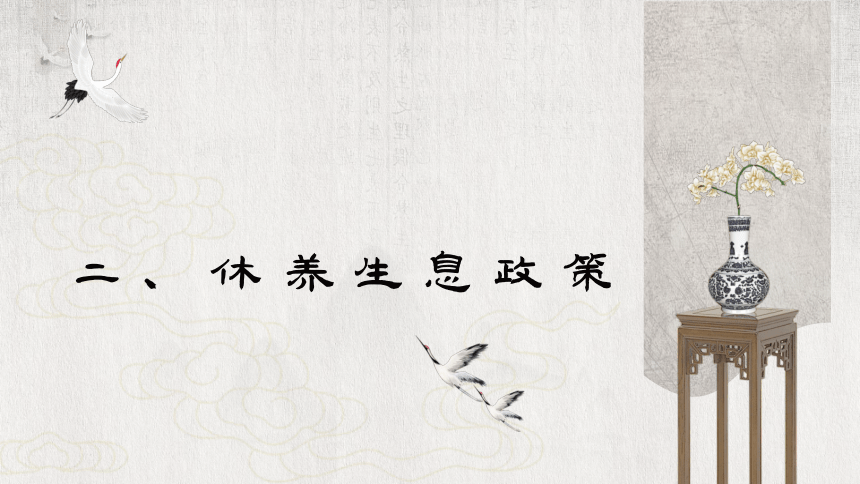 二、休养生息政策